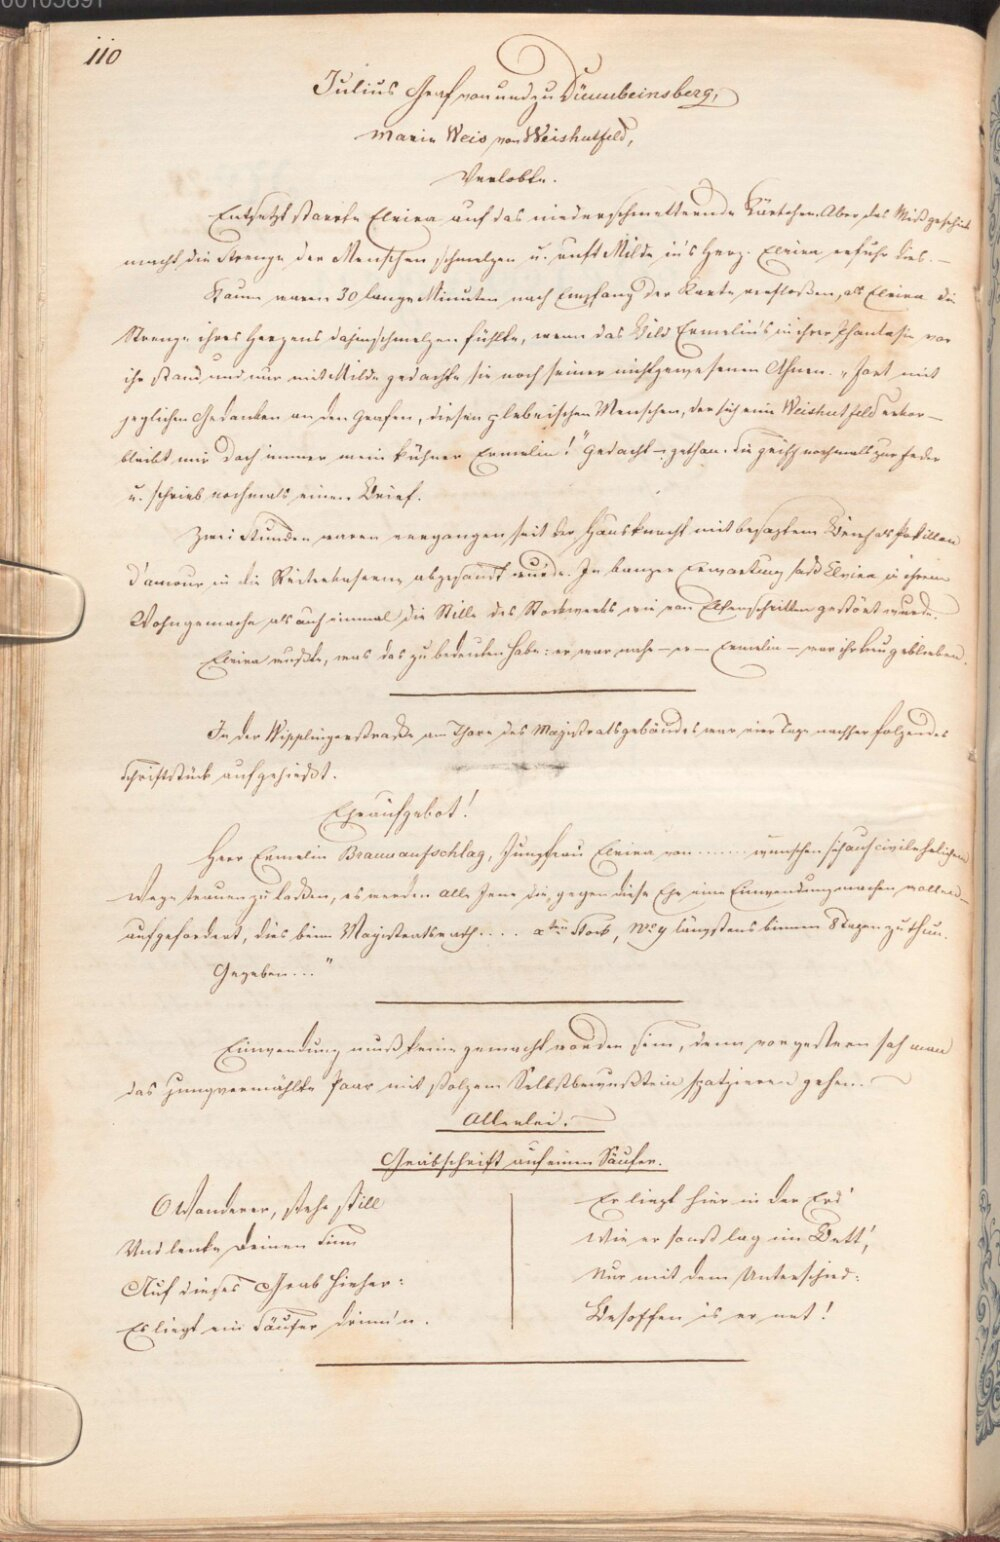 110
Julius Graf von und zu Dünnbeinsberg,
Marie Weis von Weishutfeld,
Verlobte.
Entsetzt starrte Elvira auf das niederschmetternde Kärtchen. Aber das Mißgeschick
macht die Strenge der Menschen schmelzen u. ruft Milde in's Herz. Elvira erfuhr dies. —
Kaum waren 30 lange Minuten nach Empfang der Karte verfloßen, als Elvira die
Strenge ihres Herzens dahinschmelzen fühlte, wenn das Bild Ermelin's in ihrer Phantasie vor
ihr stand und nur mit Milde gedachte sie noch seiner nichtgewesenen Ahnen. „Fort mit
jeglichen Gedanken an den Grafen, diesen plebeischen Menschen, der sich eine Weishutfeld erkor —
bleibt mir doch immer mein kühner Ermelin!" Gedacht – gethan. Sie griff nochmals zur Feder
u. schrieb nochmals einen Brief.
Zwei Stunden waren vergangen seit der Hausknecht mit besagtem Brief als Postillon
d'amour in die Reiterkaserne abgesandt wurde. In banger Erwartung saß Elvira in ihrem
Wohngemache als auf einmal die Stille des Stockwerks wie von Elfenschritten gestört wurde.
Elvira wußte, was das zu bedeuten habe: er war nahe – er – Ermelin – war ihr treu geblieben.
In der Wipplingerstraße am Thore des Magistratsgebäudes war vier Tage nachher folgendes
Schriftstück aufgehießt.
Eheaufgebot!
Herr Ermelin Braunaufschlag, Jungfrau Elvira von ...... wünschen sich auf civilehelichem
Wege trauen zu laßen, es werden alle Jene die, gegen diese Ehe eine Einwendung machen wollen
aufgefordert, dies beim Magistratsrath .... xten Stock, No y längstens binnen 8 Tagen zu thun.
Gegeben ..."
Einwendung muß keine gemacht worden sein, denn vorgestern sah man
das jungvermählte Paar mit stolzem Selbstbewußtein spatzieren gehen. —
Allerlei.
Grabschrift auf einen Säufer.
O Wanderer, stehe still
Und lenke Deinen Sinn
Auf dieses Grab hieher:
Es liegt ein Säufer drinn'n.
Er liegt hier in der Erd'
Wie er sonst lag im Bett',
Nur mit dem Unterschied:
Besoffen is er net!